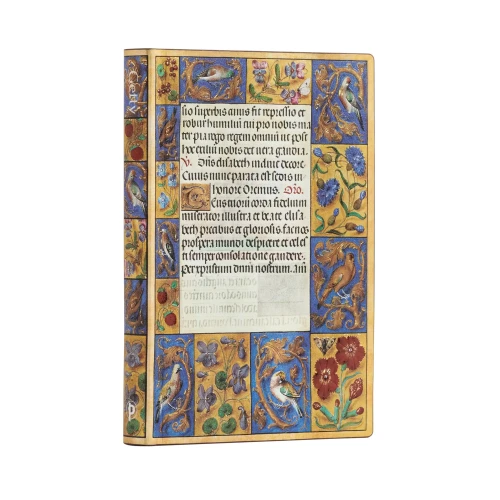 Getty
sio superbis fit repressio et
robur humiliu pro nobis ma
ter pia rego regem omniu ut post
hoc exiliu nobis det vera gaudia.
V. elisabeth decore
Cuius nunc parata est sedis in
honore Oremus. Oro.
Eus tuoru corda fidelium
miserator illustra et beate elisa
beth precibus et gloriosis. fac nos
prospera mundi despicere et celes
ti semper consolatione gaudere.
Per nostrum. Am